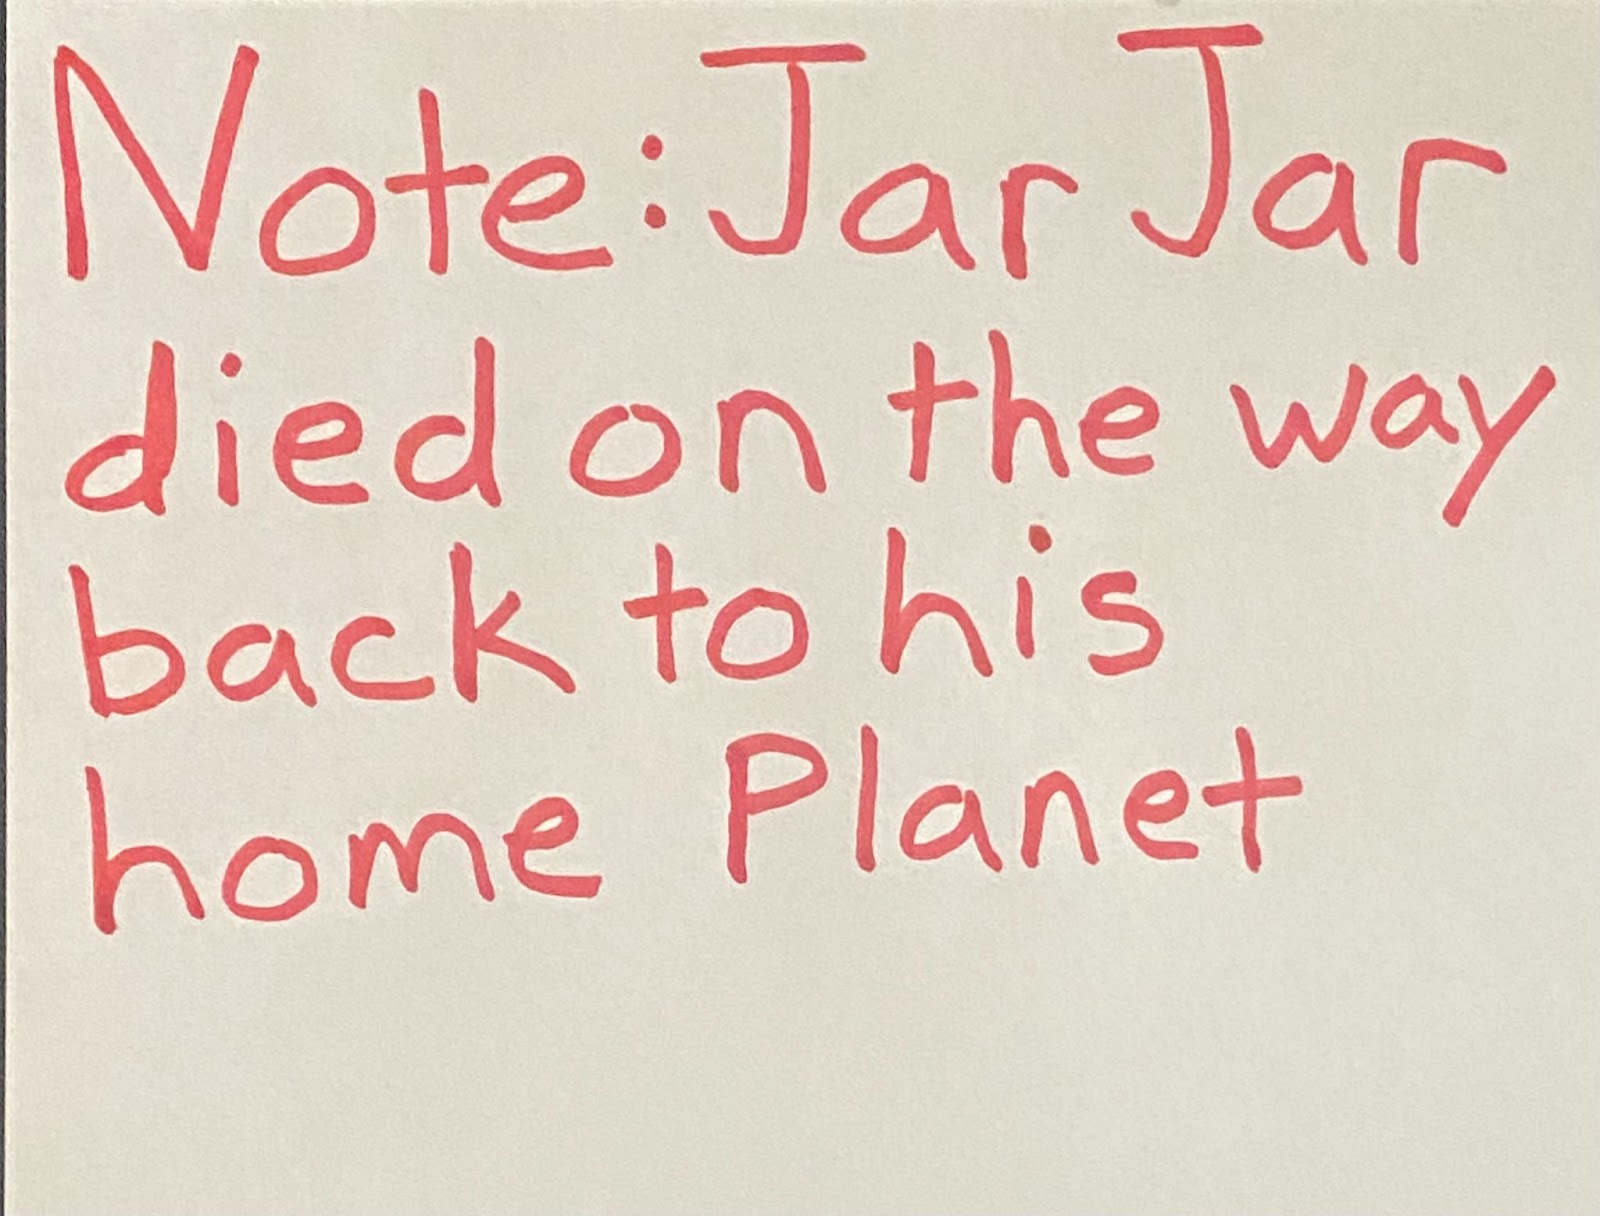 Note: Jar Jar
died on the way
back to his
home Planet